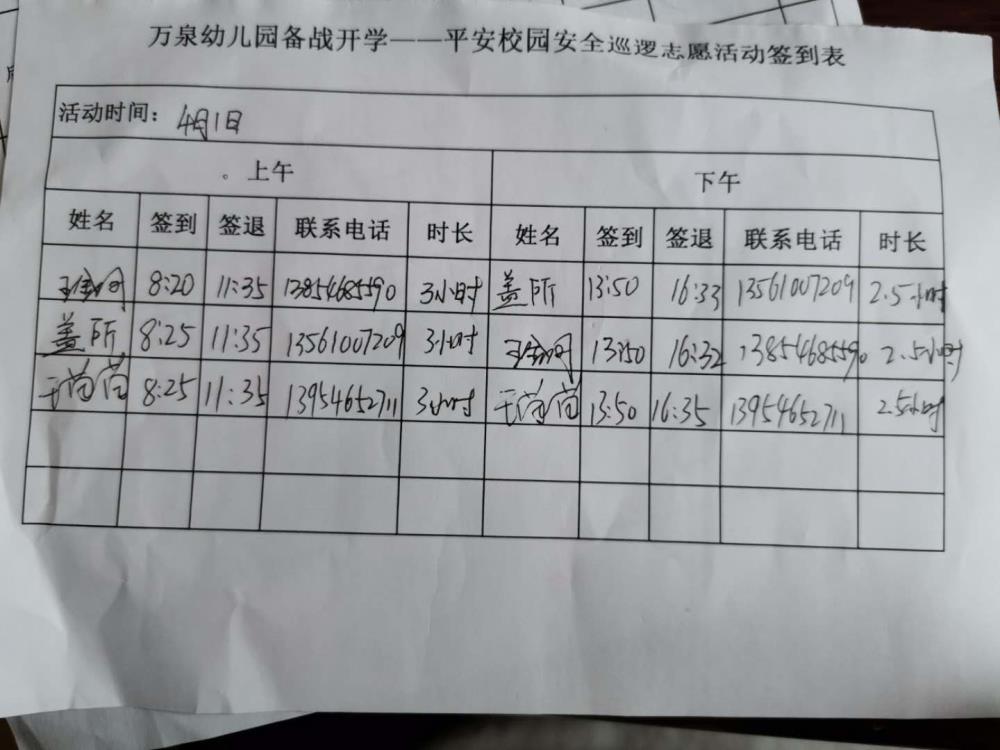 万泉幼儿园备战开学——平安校园安全巡逻志愿活动签到表
活动时间：4月1日
上午 下午
姓名 签到 签退 联系电话 时长 姓名 签到 签退 联系电话 时长
8:20 11:35 13854685590 3小时 盖所 13:50 16:33 13561007209 2.5小时
盖所 8:25 11:35 13561007209 3小时 13:50 16:32 13854685590 2.5小时
于尚尚 8:25 11:35 13954652711 3小时 于尚尚 13:50 16:35 13954652711 2.5小时